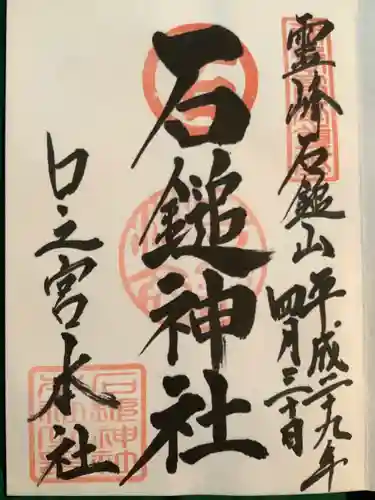 霊峰石鎚山
平成二十九年
四月三十日
石鎚神社
口之宮本社